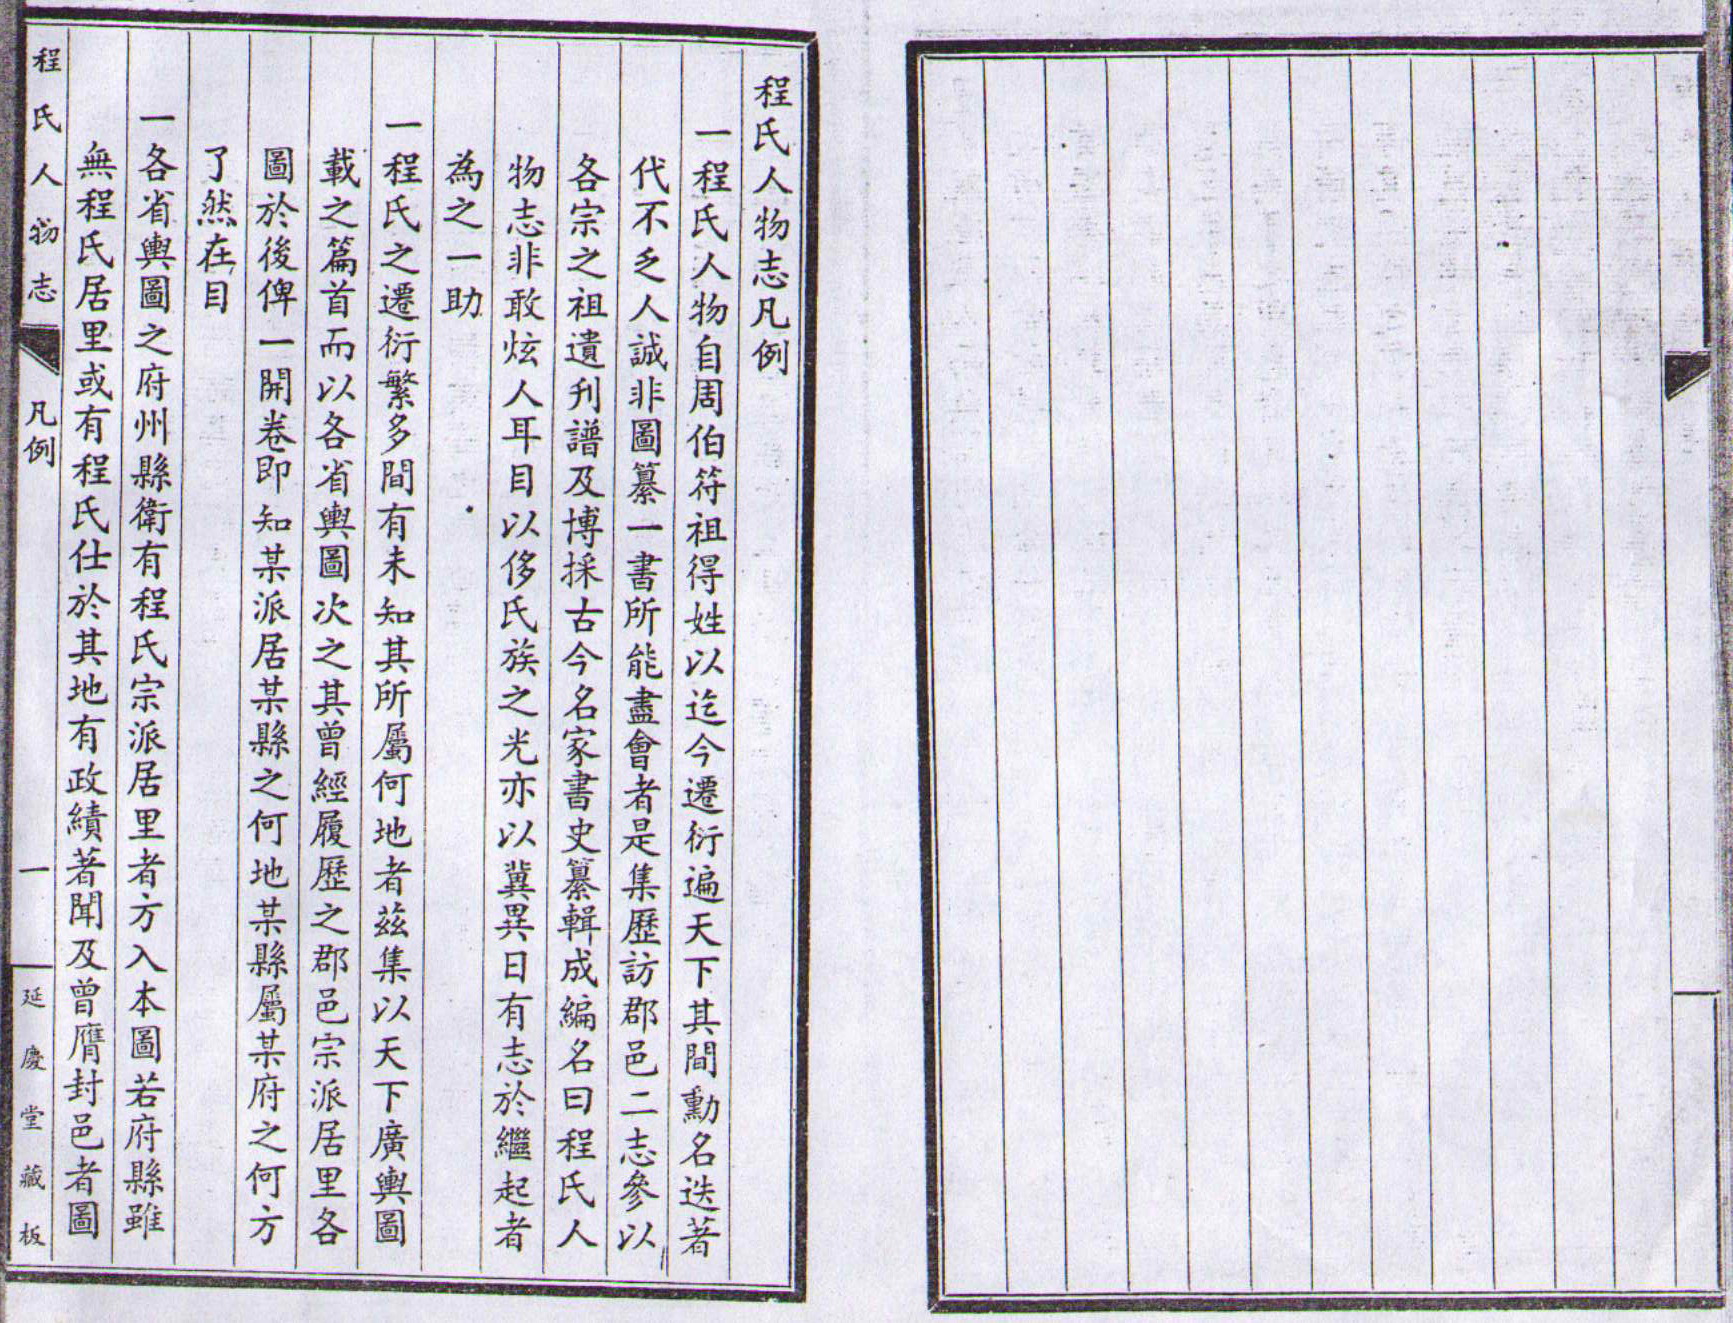 程氏人物志凡例
一程氏人物自周伯符祖得姓以迄今遷衍遍天下其間勳名迭著
代不乏人誠非圖纂一書所能盡會者是集歷訪郡邑二志參以
各宗之祖遺刋譜及博採古今名家書史纂輯成編名曰程氏人
物志非敢炫人耳目以侈氏族之光亦以冀異日有志於繼起者
為之一助
一程氏之遷衍繁多間有未知其所屬何地者兹集以天下廣輿圖
載之篇首而以各省輿圖次之其曾經履歷之郡邑宗派居里各
圖於後俾一開卷即知某派居某縣之何地某縣屬某府之何方
了然在目
一各省輿圖之府州縣衛有程氏宗派居里者方入本圖若府縣雖
無程氏居里或有程氏仕於其地有政績著聞及曾膺封邑者圖
程氏人物志
凡例
一
延慶堂藏板